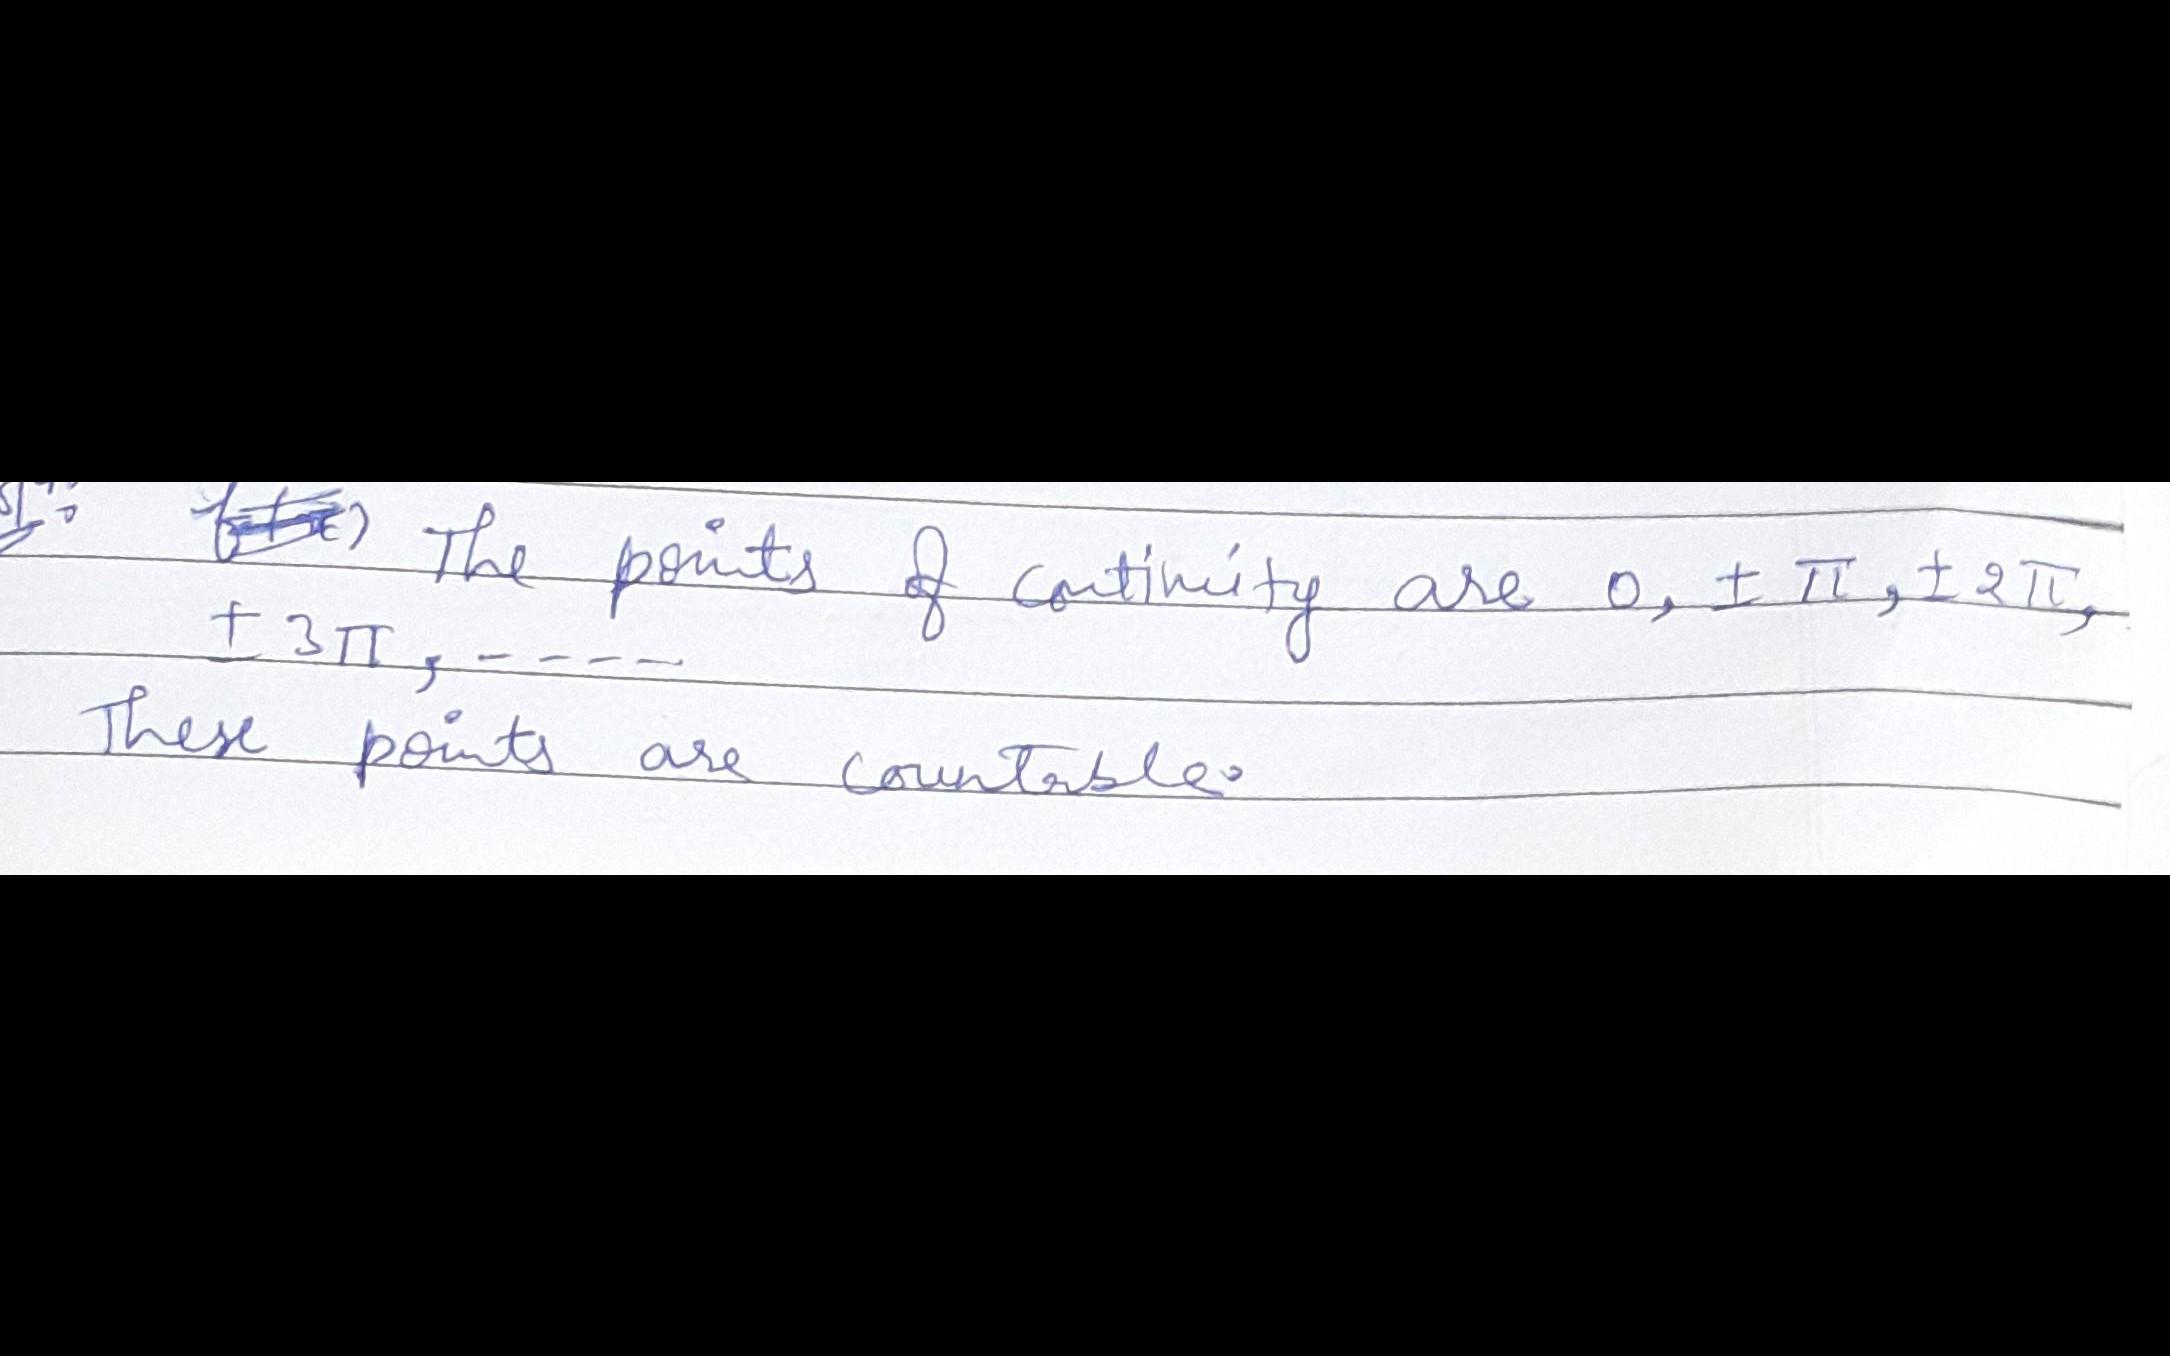 The points of continuity are 0, ± π, ± 2π,
± 3π, - - - -
These points are countable.